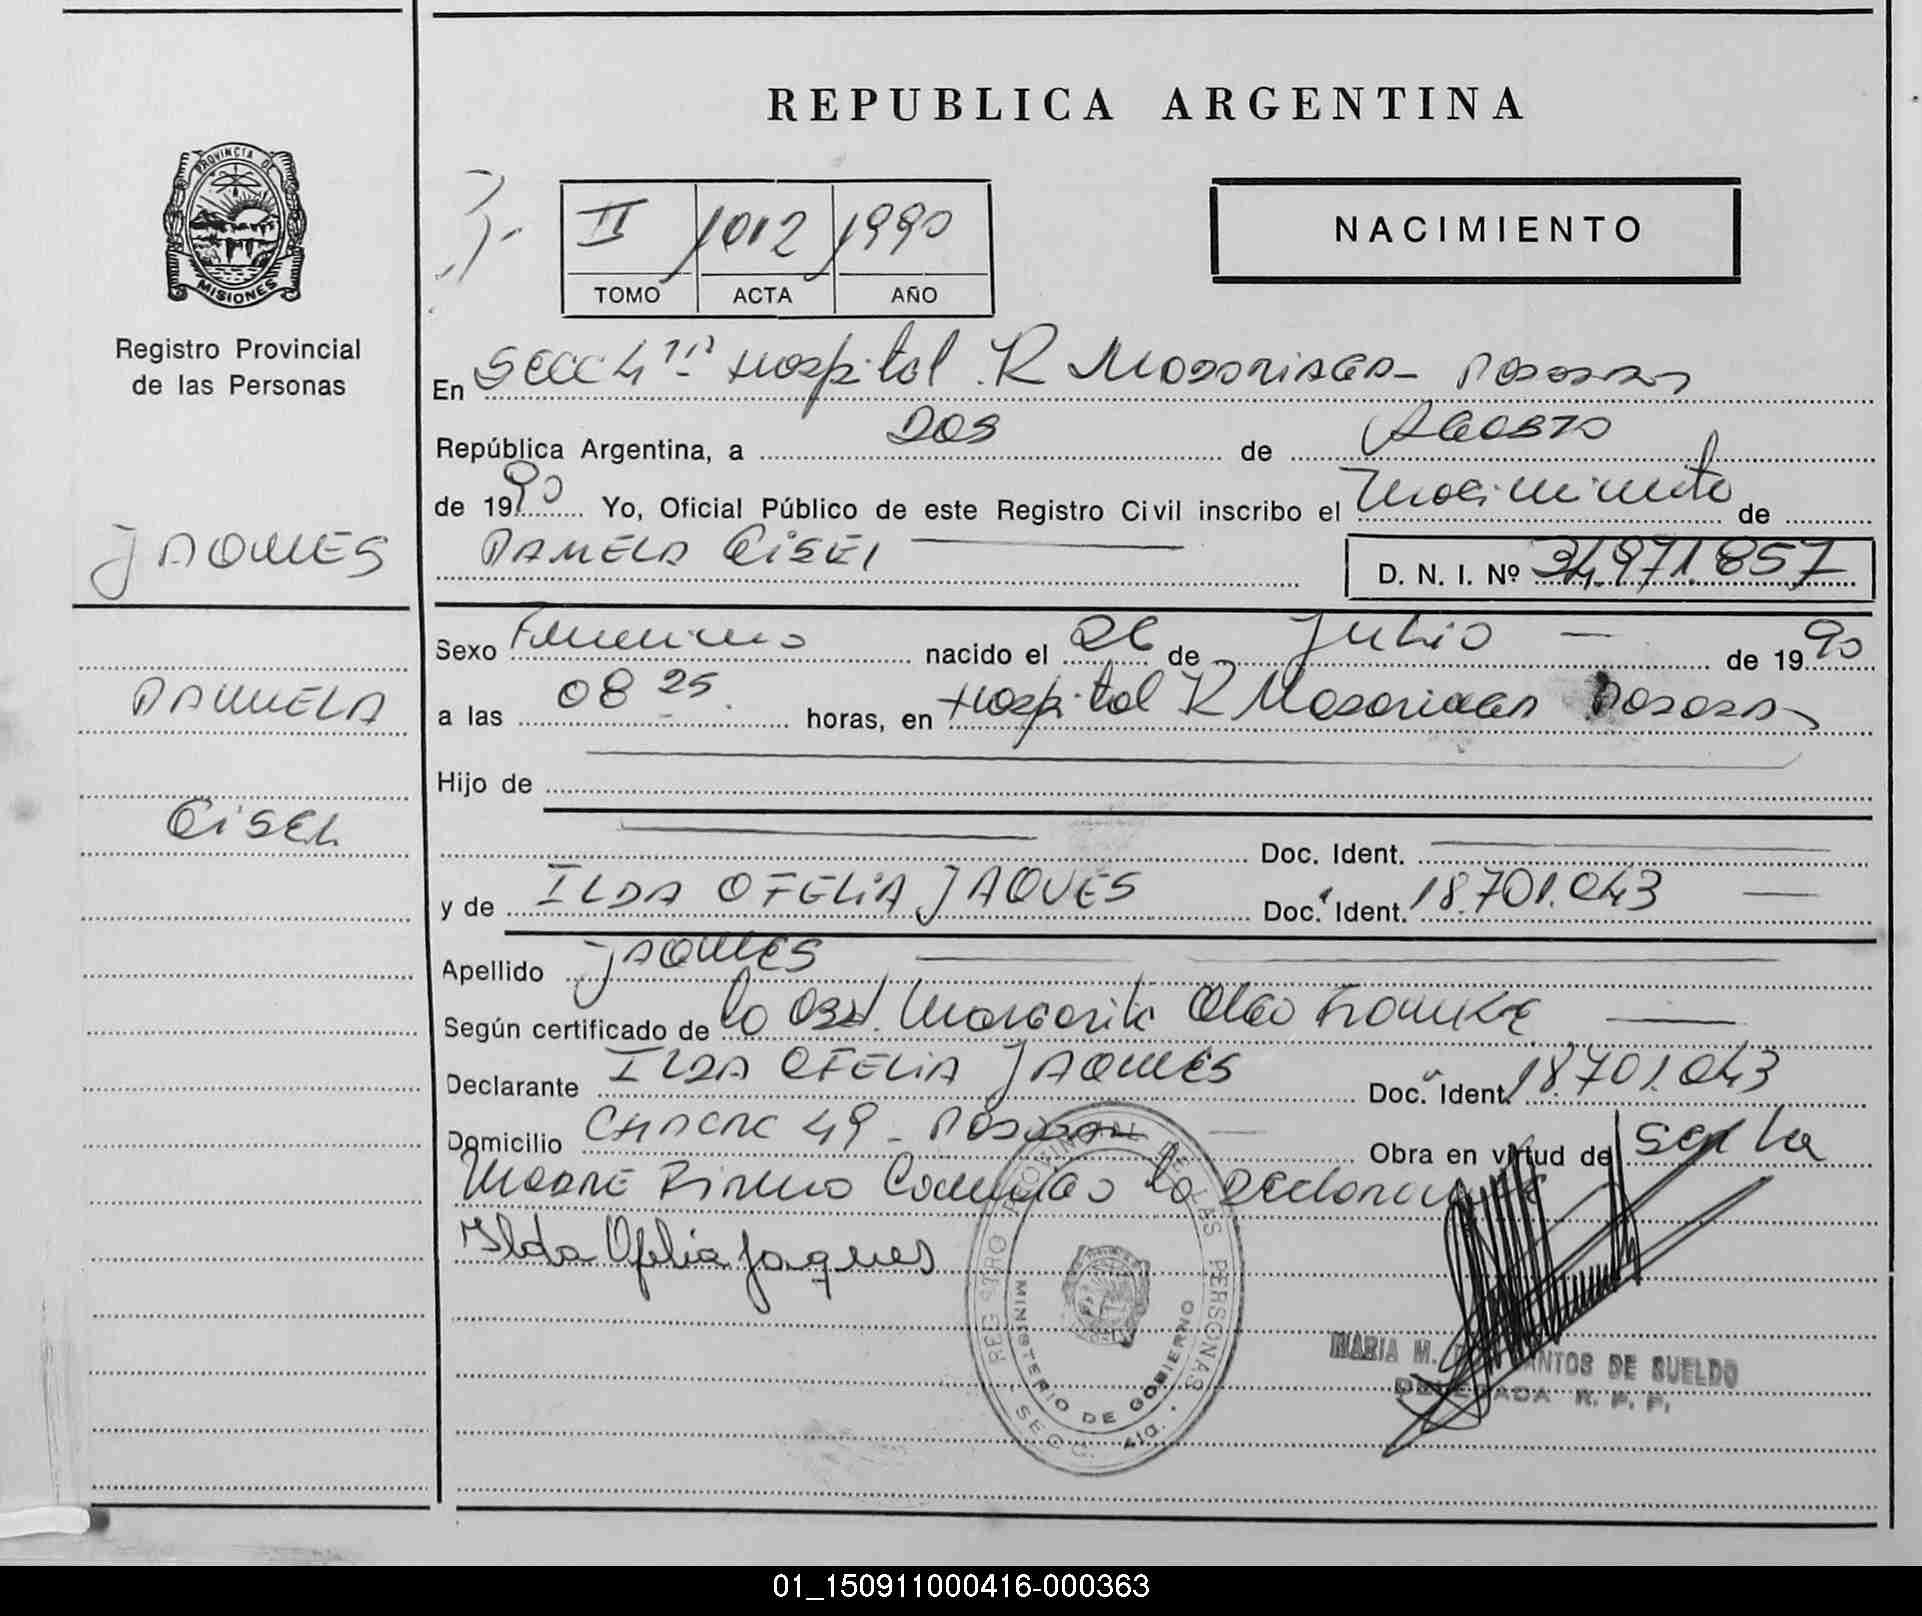 REPUBLICA ARGENTINA
PROVINCIA DE
MISIONES
Registro Provincial
de las Personas
II 1012 1990
TOMO ACTA AÑO
NACIMIENTO
En Secc 4ta Hospital R Madariaga - Posadas
República Argentina, a DOS de AGOSTO
de 1990 Yo, Oficial Público de este Registro Civil inscribo el nacimiento de
PAMELA GISEL D. N. I. Nº 34.971.857
JAQUES
PAMELA
GISEL
Sexo Femenino nacido el 26 de Julio de 1990
a las 08 25 horas, en Hospital R Madariaga Posadas
Hijo de
Doc. Ident.
y de ILDA OFELIA JAQUES Doc. Ident. 18.701.043
Apellido JAQUES
Según certificado de la Obst. Margarita Olga
Declarante ILDA OFELIA JAQUES Doc. Ident. 18.701.043
Domicilio CHACRA 49 - Posadas Obra en virtud de ser la
Madre Firma Conmigo la Declarante
Ilda Ofelia Jaques
REGISTRO PROVINCIAL DE LAS PERSONAS
MINISTERIO DE GOBIERNO
SECC. 4ta.
MARIA M. SANTOS DE SUELDO
DELEGADA R. P. P.
01_150911000416-000363